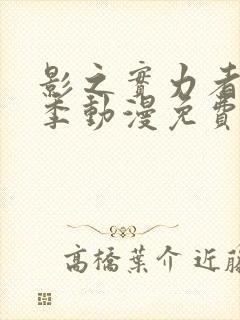 影之實力者
季動漫免費
高橋葉介 近藤